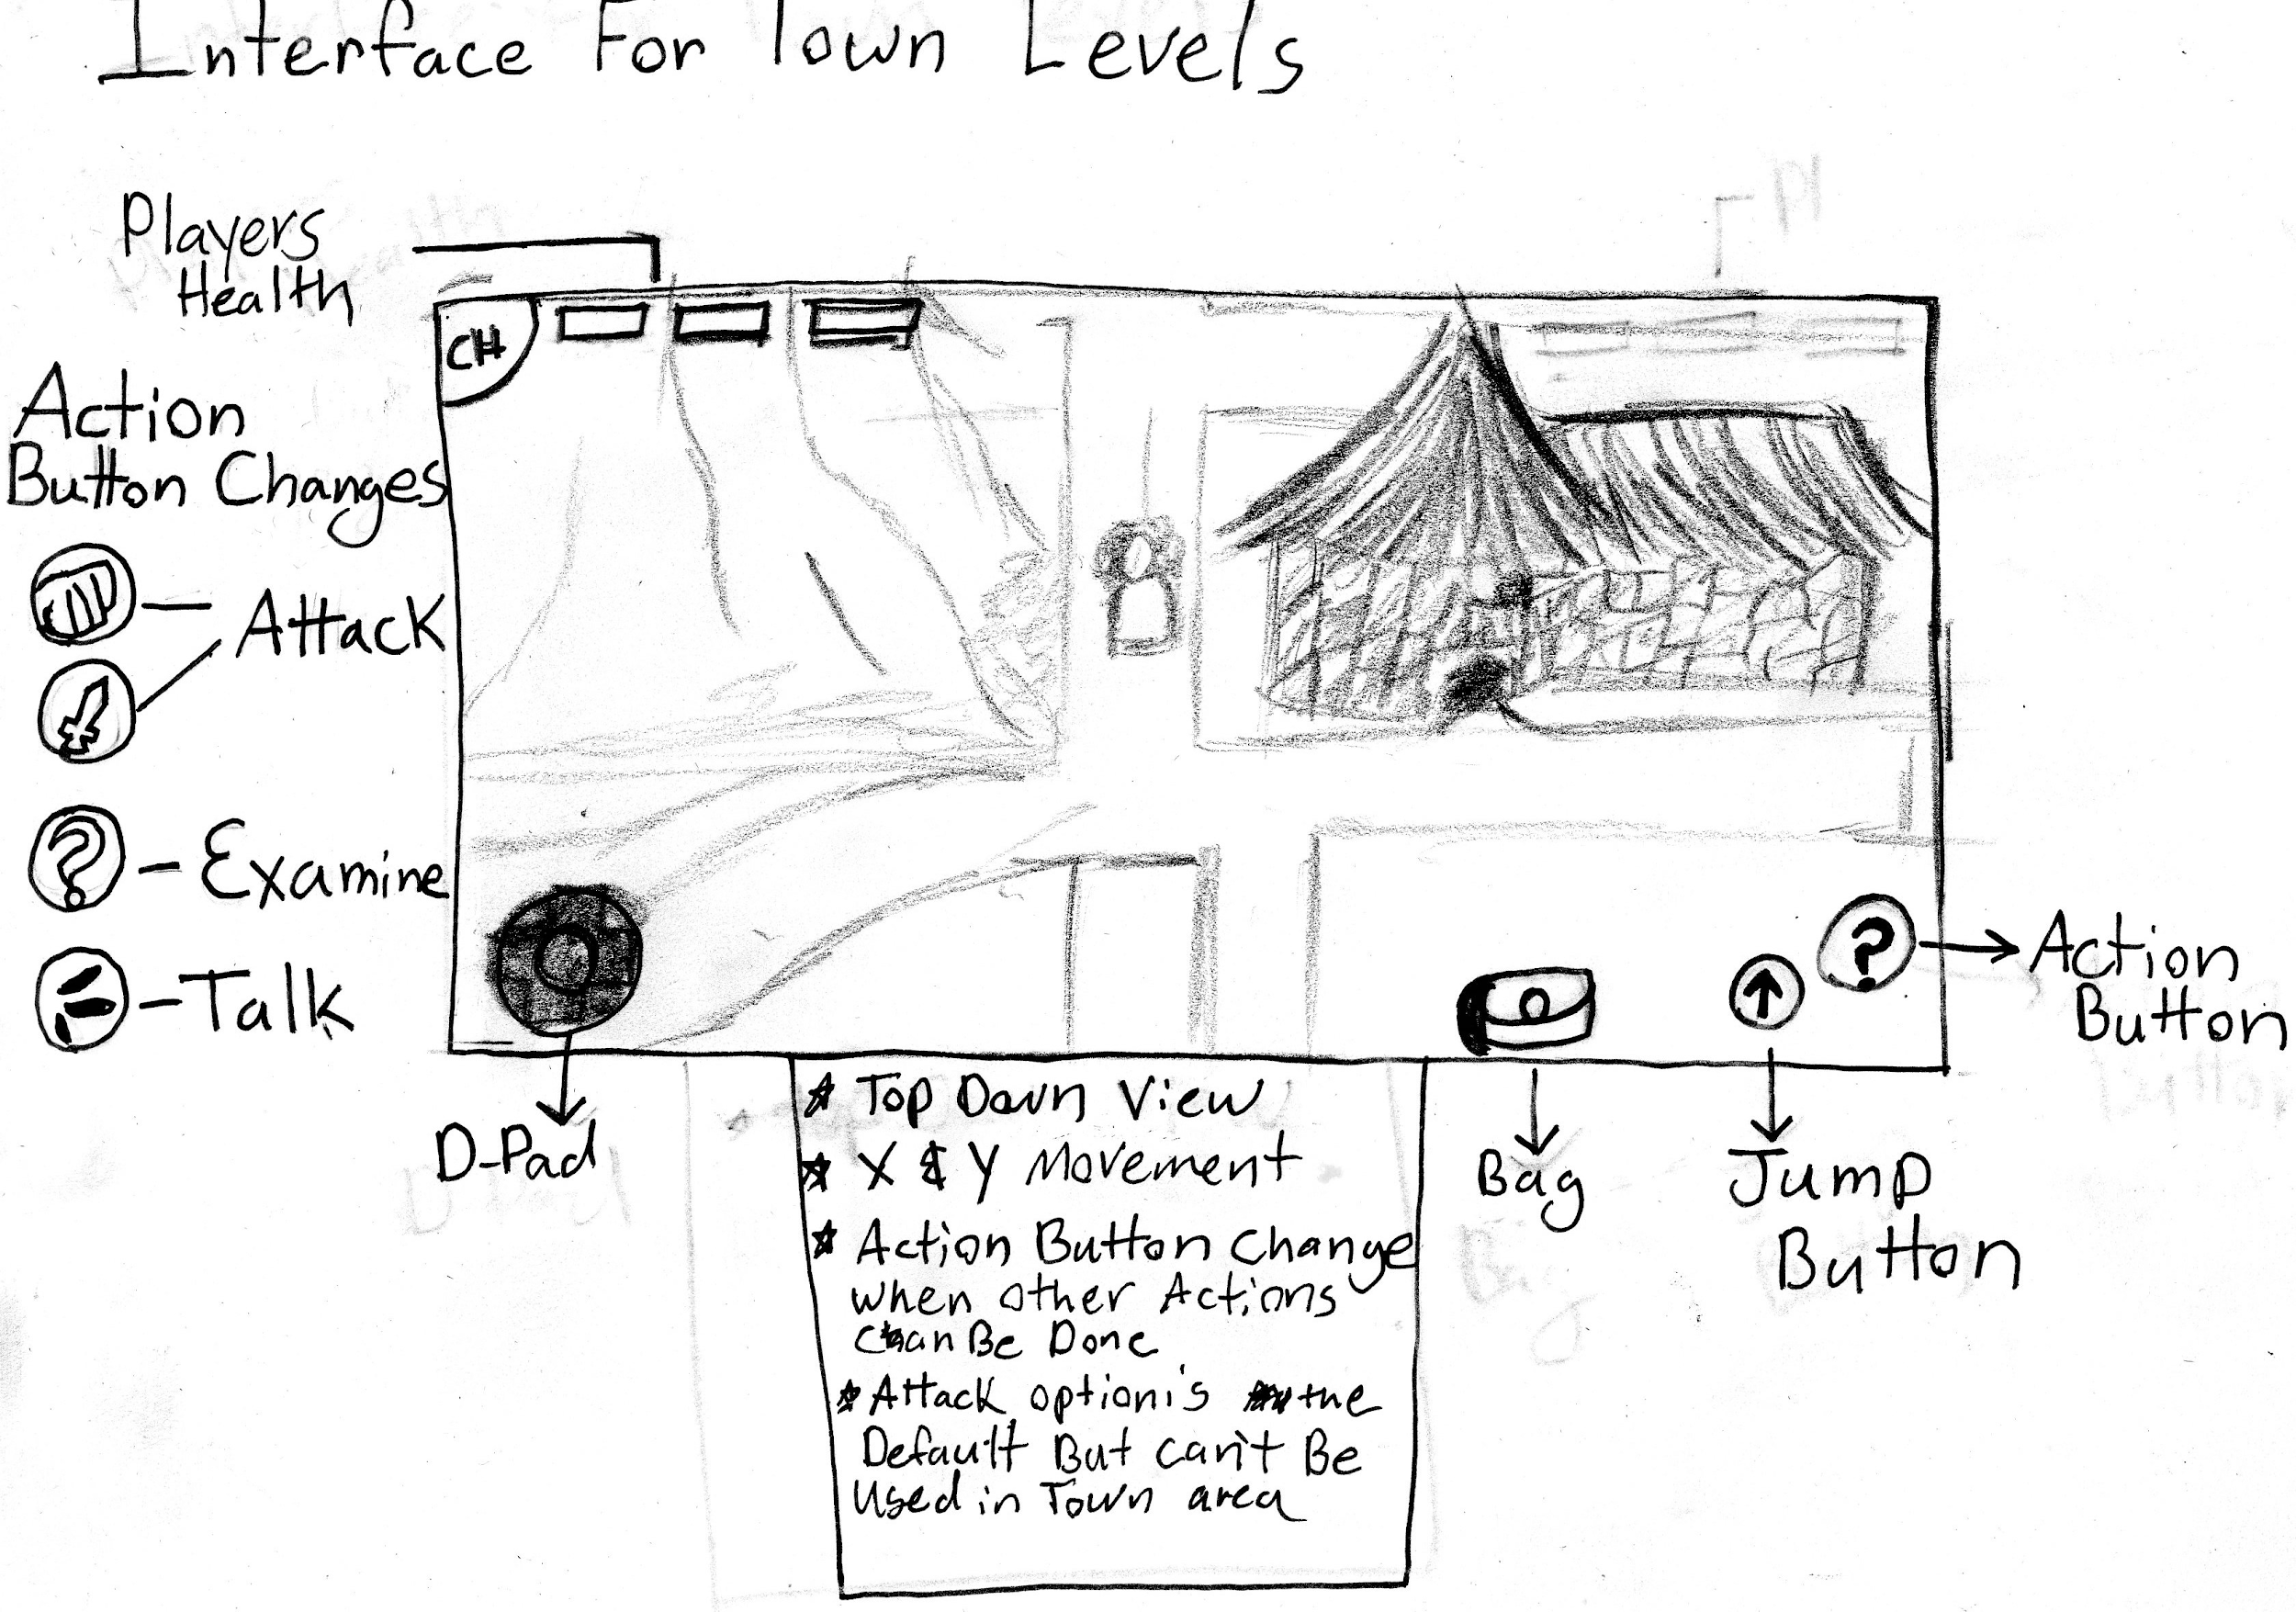 Interface For Town Levels
Players
Health
CH
Action
Button Changes
Attack
?
-Examine
-Talk
?
Action
Button
D-Pad
Bag
Jump
Button
* Top Down View
* X & Y Movement
* Action Button Change
when other Actions
Can Be Done
* Attack option is the
Default But can't Be
Used in Town area